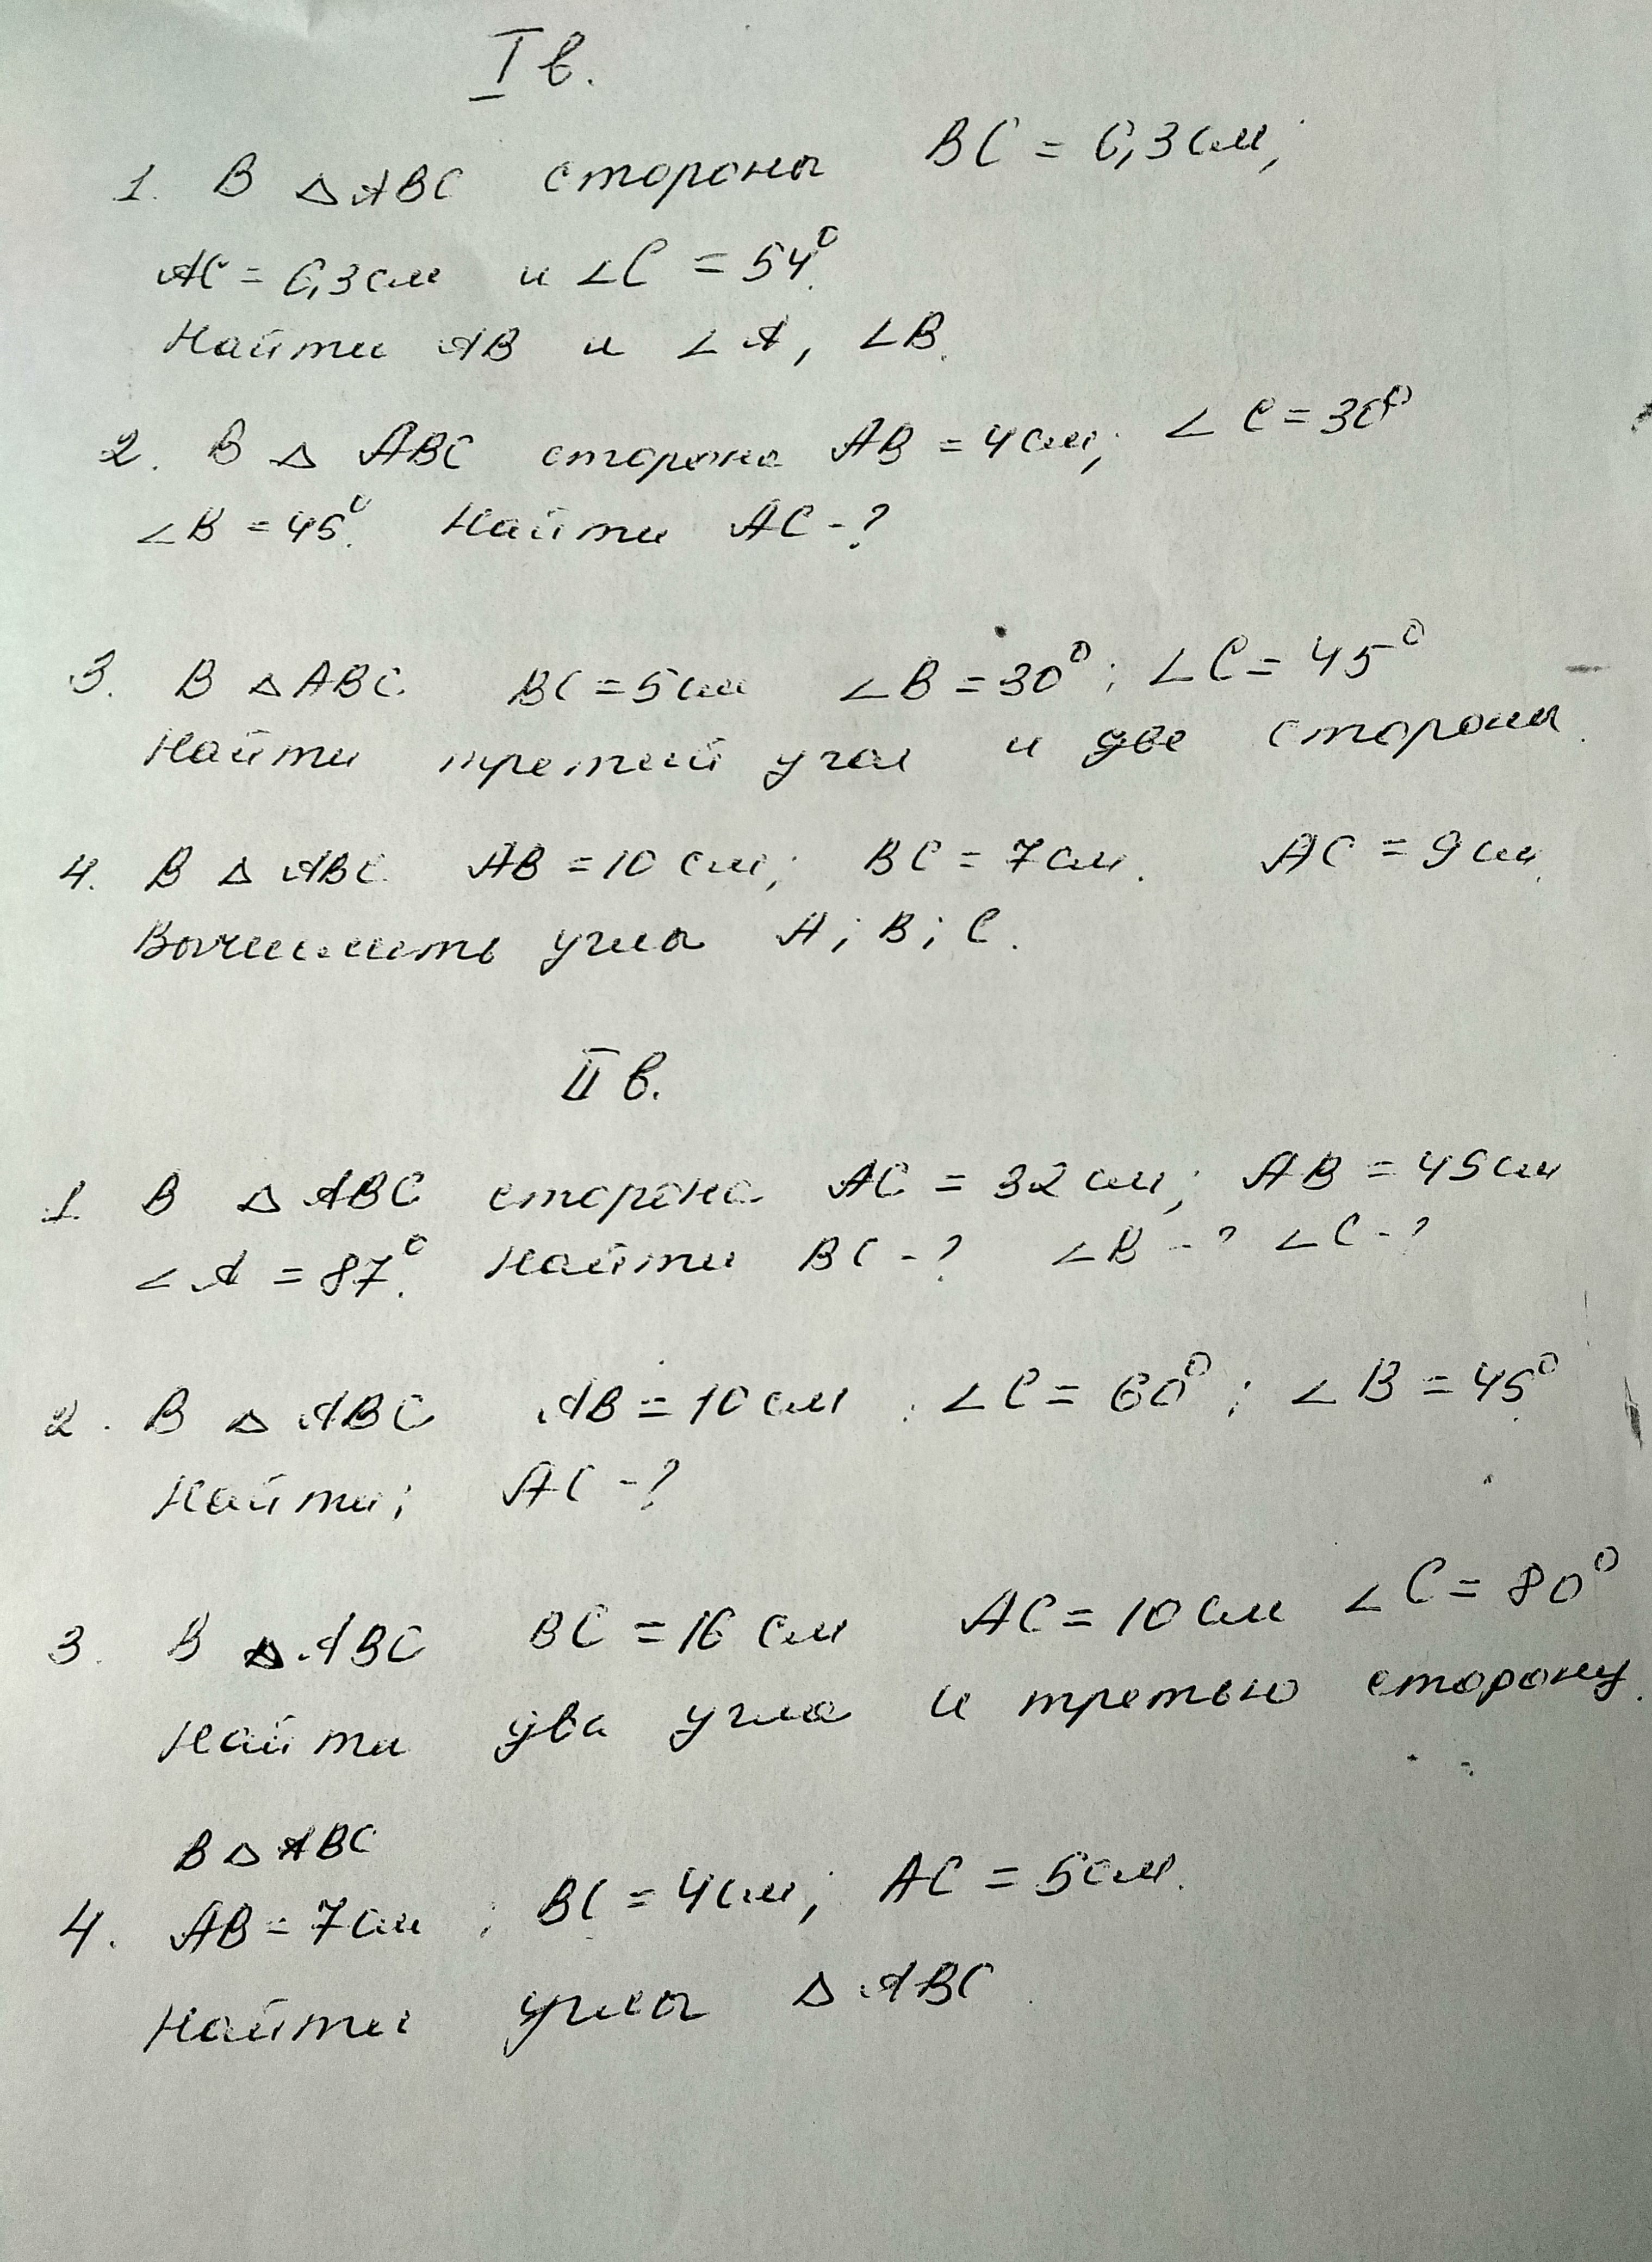 I в.
1. В △ABC стороны BC = 6,3 см;
AC = 6,3 см и ∠C = 54°.
Найти AB и ∠A, ∠B.
2. В △ ABC сторона AB = 4 см; ∠C = 30°
∠B = 45°. Найти AC - ?
3. В △ABC. BC = 5 см ∠B = 30°; ∠C = 45°
Найти третий угол и две стороны.
4. В △ ABC. AB = 10 см; BC = 7 см. AC = 9 см.
Вычислить углы A; B; C.
II в.
1. В △ ABC сторона AC = 32 см; AB = 45 см
∠A = 87°. Найти BC - ? ∠B - ? ∠C - ?
2. В △ ABC AB = 10 см; ∠C = 60°; ∠B = 45°.
Найти; AC - ?
3. В △ABC BC = 16 см AC = 10 см ∠C = 80°
Найти два угла и третью сторону.
В △ABC
4. AB = 7 см; BC = 4 см; AC = 5 см.
Найти углы △ ABC.